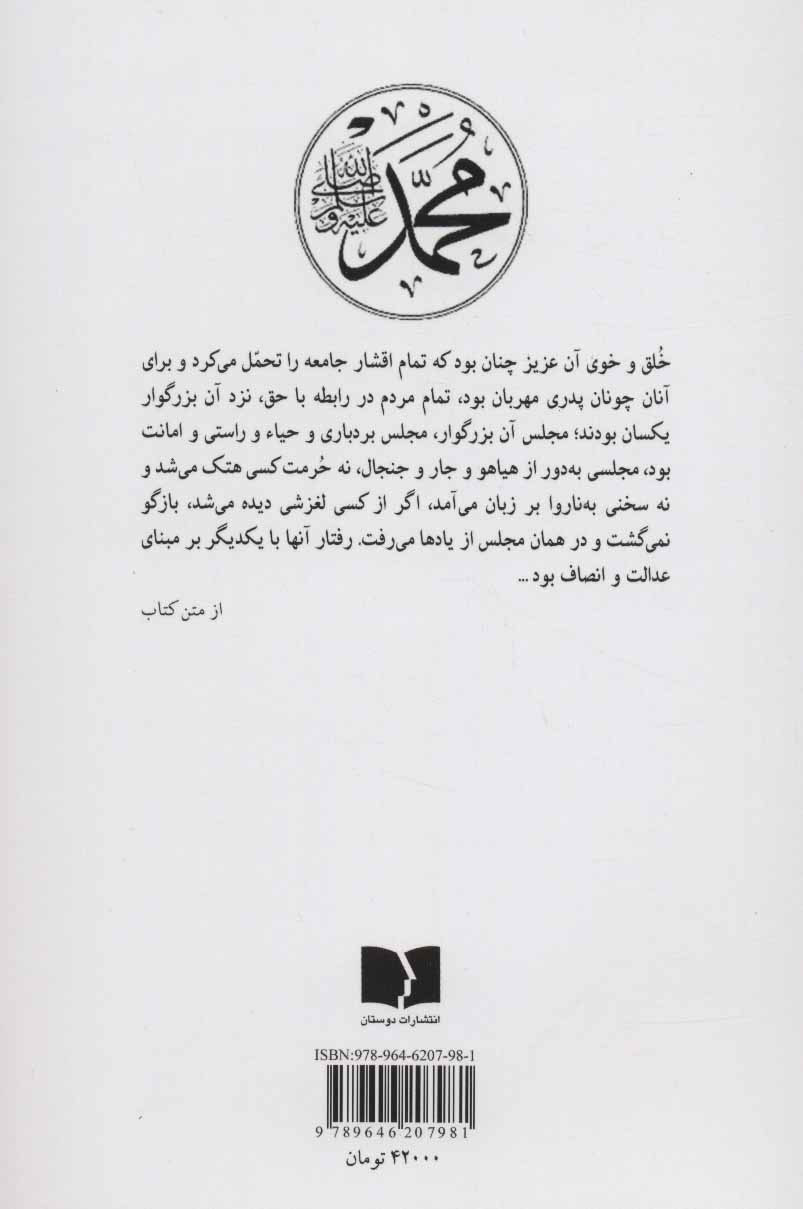 محمد
صلى الله عليه وسلم
خُلق و خوی آن عزیز چنان بود که تمام اقشار جامعه را تحمّل می‌کرد و برای
آنان چونان پدری مهربان بود، تمام مردم در رابطه با حق، نزد آن بزرگوار
یکسان بودند؛ مجلس آن بزرگوار، مجلس بردباری و حیاء و راستی و امانت
بود، مجلسی به‌دور از هیاهو و جار و جنجال، نه حُرمت کسی هتک می‌شد و
نه سخنی به‌ناروا بر زبان می‌آمد، اگر از کسی لغزشی دیده می‌شد، بازگو
نمی‌گشت و در همان مجلس از یادها می‌رفت. رفتار آنها با یکدیگر بر مبنای
عدالت و انصاف بود ...
از متن کتاب
انتشارات دوستان
ISBN:978-964-6207-98-1
9 789646 207981
۴۲۰۰۰ تومان